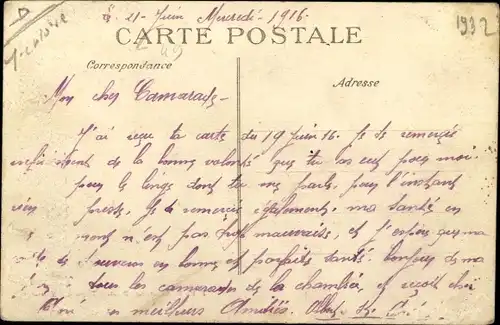 21 - Juin Mercredi - 1916 -
1932
CARTE POSTALE
Correspondance
Adresse
Mon cher Camarade -
J'ai reçu ta carte du 19 Juin 16. Je te remercie
infiniment de la bonne volonté que tu as eut pour moi.
pour le linge dont tu me parle, pour l'instant
rien presse. Je te remercie également. ma santé en
ce moment n'est pas trop mauvaise, et j'espère que ma
carte te trouvera en bonne et parfaite santé. bonjour de ma
à tous les camarades de la chambrée, et reçoit
mes meilleurs Amitiés.